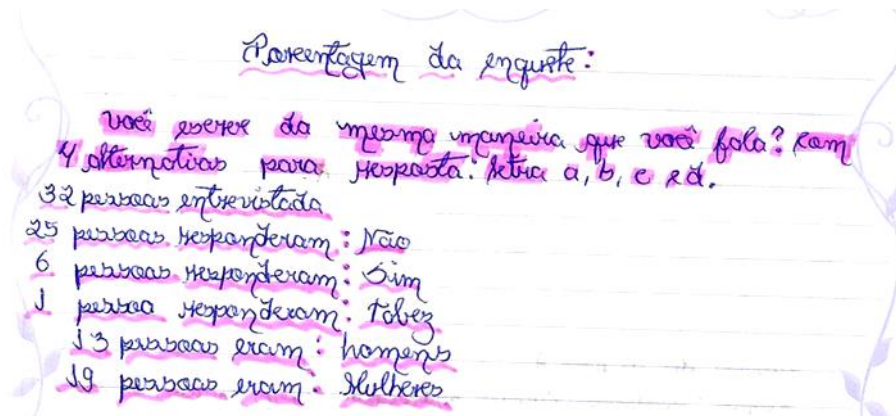 Porcentagem da enquete:
você escreve da mesma maneira que você fala? Com
4 alternativas para resposta: letra a, b, c e d.
32 pessoas entrevistada
25 pessoas responderam: Não
6 pessoas responderam: Sim
1 pessoa responderam: Tobez
13 pessoas eram: homens
19 pessoas eram: Mulheres